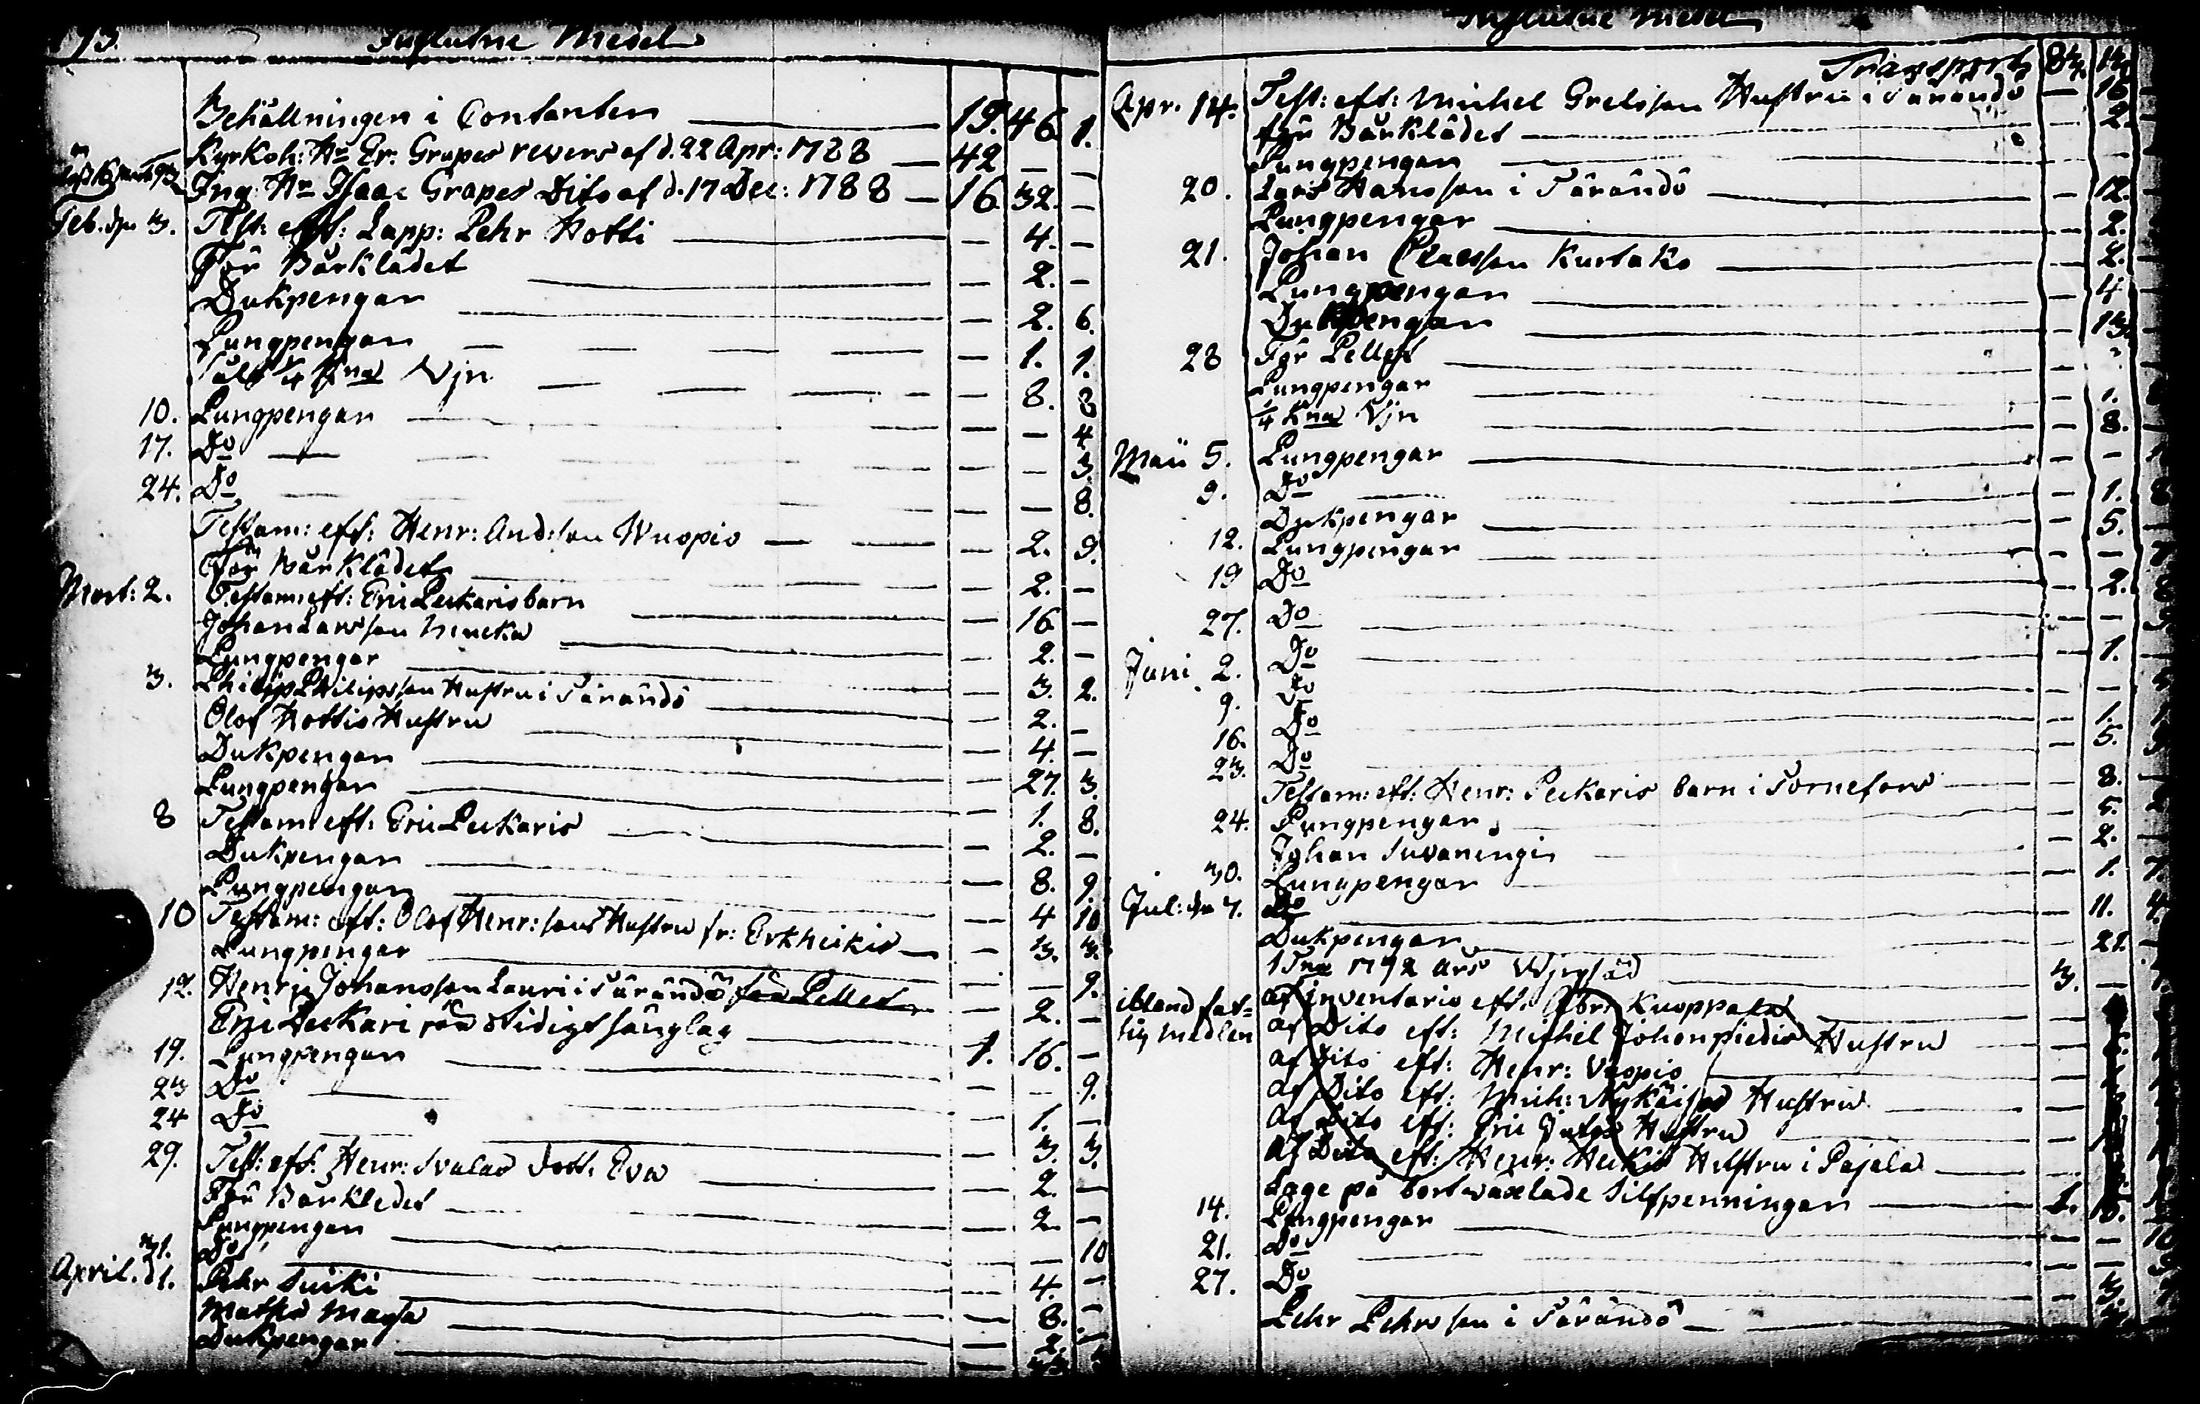 Influtne Medel
Behållningen i Contanter — 19. 46. 1.
Kyrkoh: Hr Er: Grapes revers af d. 22 Apr: 1788 — 42 — —
Ing: Hr Isaac Grapes Dito af d. 17 Dec: 1788 — 16 32. —
Feb. dn 3. Test: eft: Lapp: Pehr Hotti — 4. —
För Bårklädet — 2. —
Dukpengar — 2. 6.
Pungpengar — 1. 1.
Sålt 1/4 Kna Vjn — 8. 8
10. Pungpengar — — 4
17. Do — — 3.
24. Do — — 8.
Testam: eft: Henr: And:son Wuopio — 2. 9.
För Bårklädet — 2. —
Mart: 2. Testam: eft: Eric Peckaris barn — 16 —
Johan Larsson — 2. —
Pungpengar — 3. 2.
3. Philip Philipsson Hustru i Tärändö — 2. —
Olof Hottis Hustru — 4. —
Dukpengar — 27. 3.
Pungpengar — 1. 8.
8 Testam: eft: Eric Peckaris — 2. —
Dukpengar — 8. 9.
Pungpengar — 4 10
10 Testam: eft: Olof Henr:sons Hustru fr: Erkheikis — 3. 3.
Pungpengar — — 9.
12. Henric Johansson Lauri i Tärändö — 2. —
Eric Peckari för otidigt sänglag — 1. 16. —
19. Pungpengar — — 9.
23 Do — 1. —
24 Do — 3. 3.
29. Test: eft: Henr: Svalas dott: Eva — 2. —
För Bårkledet — 2 —
Pungpengar — — 10
31. Do — 4. —
April. d 1. Pehr Suiki — 8. —
Maths Maysa — 2.
Dukpengar
Influtne Medel
Transport
Apr. 14. Test: eft: Michel Grelsson Hustru i Tärändö — 16
för Bårklädet — 2.
Pungpengar
20. Lars Hansson i Tärändö — 12.
Pungpengar — 2.
21. Johan Claesson Kurtako — 2.
Pungpengar — 4
Dukpengar — 13.
28 För Pellet
Pungpengar — 1.
1/4 Kna Vjn — 8.
Maii 5. Pungpengar — —
9. Do — 1. 8
Dukpengar — 5.
12. Pungpengar — —
19 Do — 2.
27. Do — —
Juni 2. Do — 1.
9. Do — —
16. Do — 1.
23. Do — 5.
Testam: eft: Henr: Peckaris barn i Tornefors — 8.
24. Pungpengar — 5.
Johan Suvanengi — 2.
30. Pungpengar — 1. 7.
Jul: dn 7. Do — 11. 4.
Dukpengar — 21.
1 Tna 1792 års Vjngsäd — 3. —
ibland fattig medlen af inventario eft: Abr: Kuoppaka
af Dito eft: Michel Johanpiedis Hustru
af Dito eft: Henr: Vuopio
af Dito eft: Mich: Nykäises Hustru
af Dito eft: Eric Hustru
af Dito eft: Henr: Heikis Hustru i Pajala
Lage på bortväxlade Silfpenningar — 1. 15.
14. Pungpengar — — 10
21. Do
27. Do — 3.
Pehr Pehrsson i Tärändö